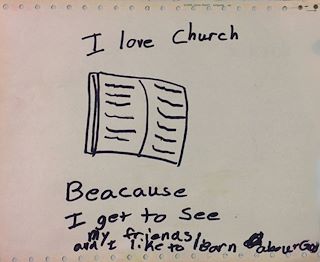 I love Church
Beacause
I get to See
My friends
and I like to learn about God